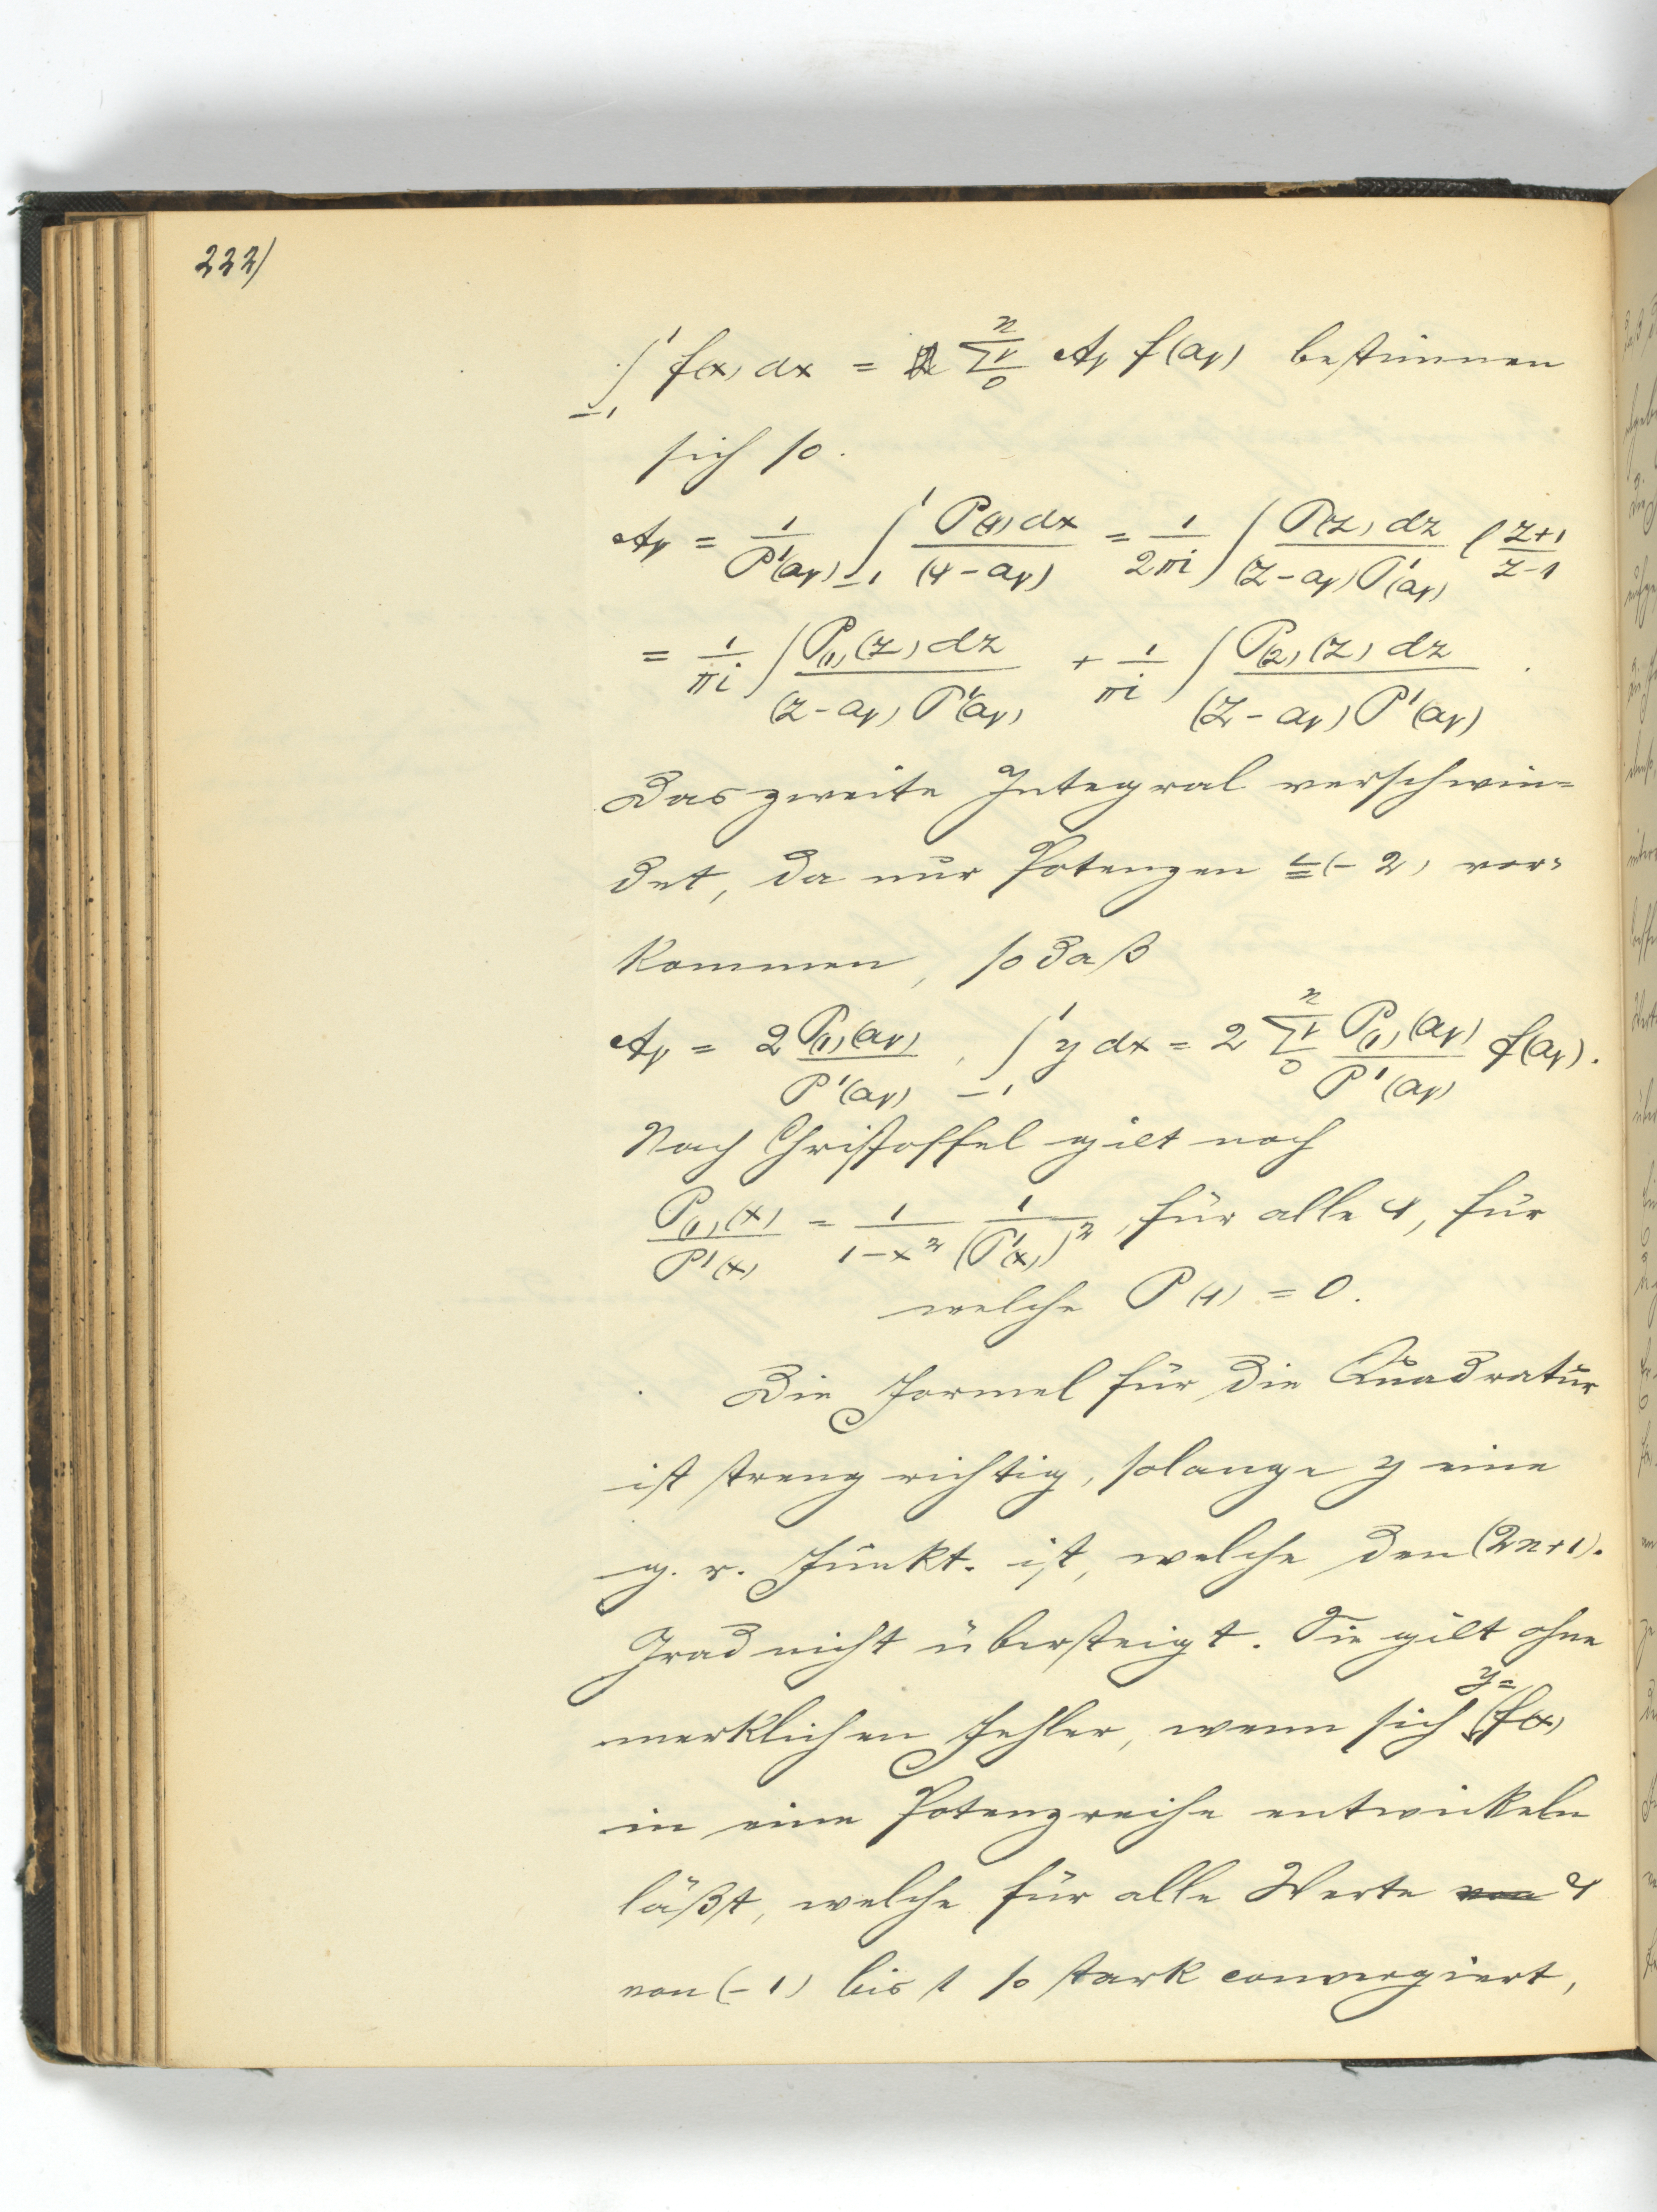 222)
∫_{-1}^{1} f(x) dx = Σ_{0}^{n}ν A_ν f(a_ν) bestimmen
sich so.
A_ν = 1/P'(a_ν) ∫_{-1}^{1} P(x) dx/(x - a_ν) = 1/2πi ∫ P(z) dz/((z - a_ν) P'(a_ν)) l (z+1)/(z-1)
= 1/πi ∫ P_(1)(z) dz/((z - a_ν) P'(a_ν)) + 1/πi ∫ P_(2)(z) dz/((z - a_ν) P'(a_ν)).
Das zweite Integral verschwin=
det, da nur Potenzen ≦ (-2) vor=
kommen, so daß
A_ν = 2 P_(1)(a_ν)/P'(a_ν), ∫_{-1}^{1} y dx = 2 Σ_{0}^{n}ν P_(1)(a_ν)/P'(a_ν) f(a_ν).
Nach Christoffel gilt noch
P_(1)(x)/P'(x) = 1/(1-x²) 1/(P'(x))², für alle x, für
welche P(x) = 0.
Die Formel für die Quadratur
ist streng richtig, solange y eine
g. r. Funkt. ist, welche den (2n+1).
Grad nicht übersteigt. Sie gilt ohne
merklichen Fehler, wenn sich y= f(x)
in eine Potenzreihe entwickeln
läßt, welche für alle Werte von x
von (-1) bis 1 so stark convergiert,